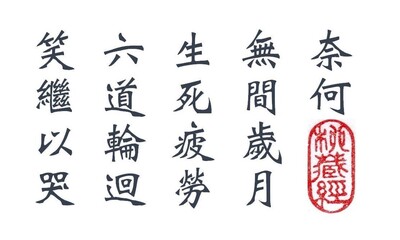 奈何
藏經
無間歲月
生死疲勞
六道輪迴
笑繼以哭